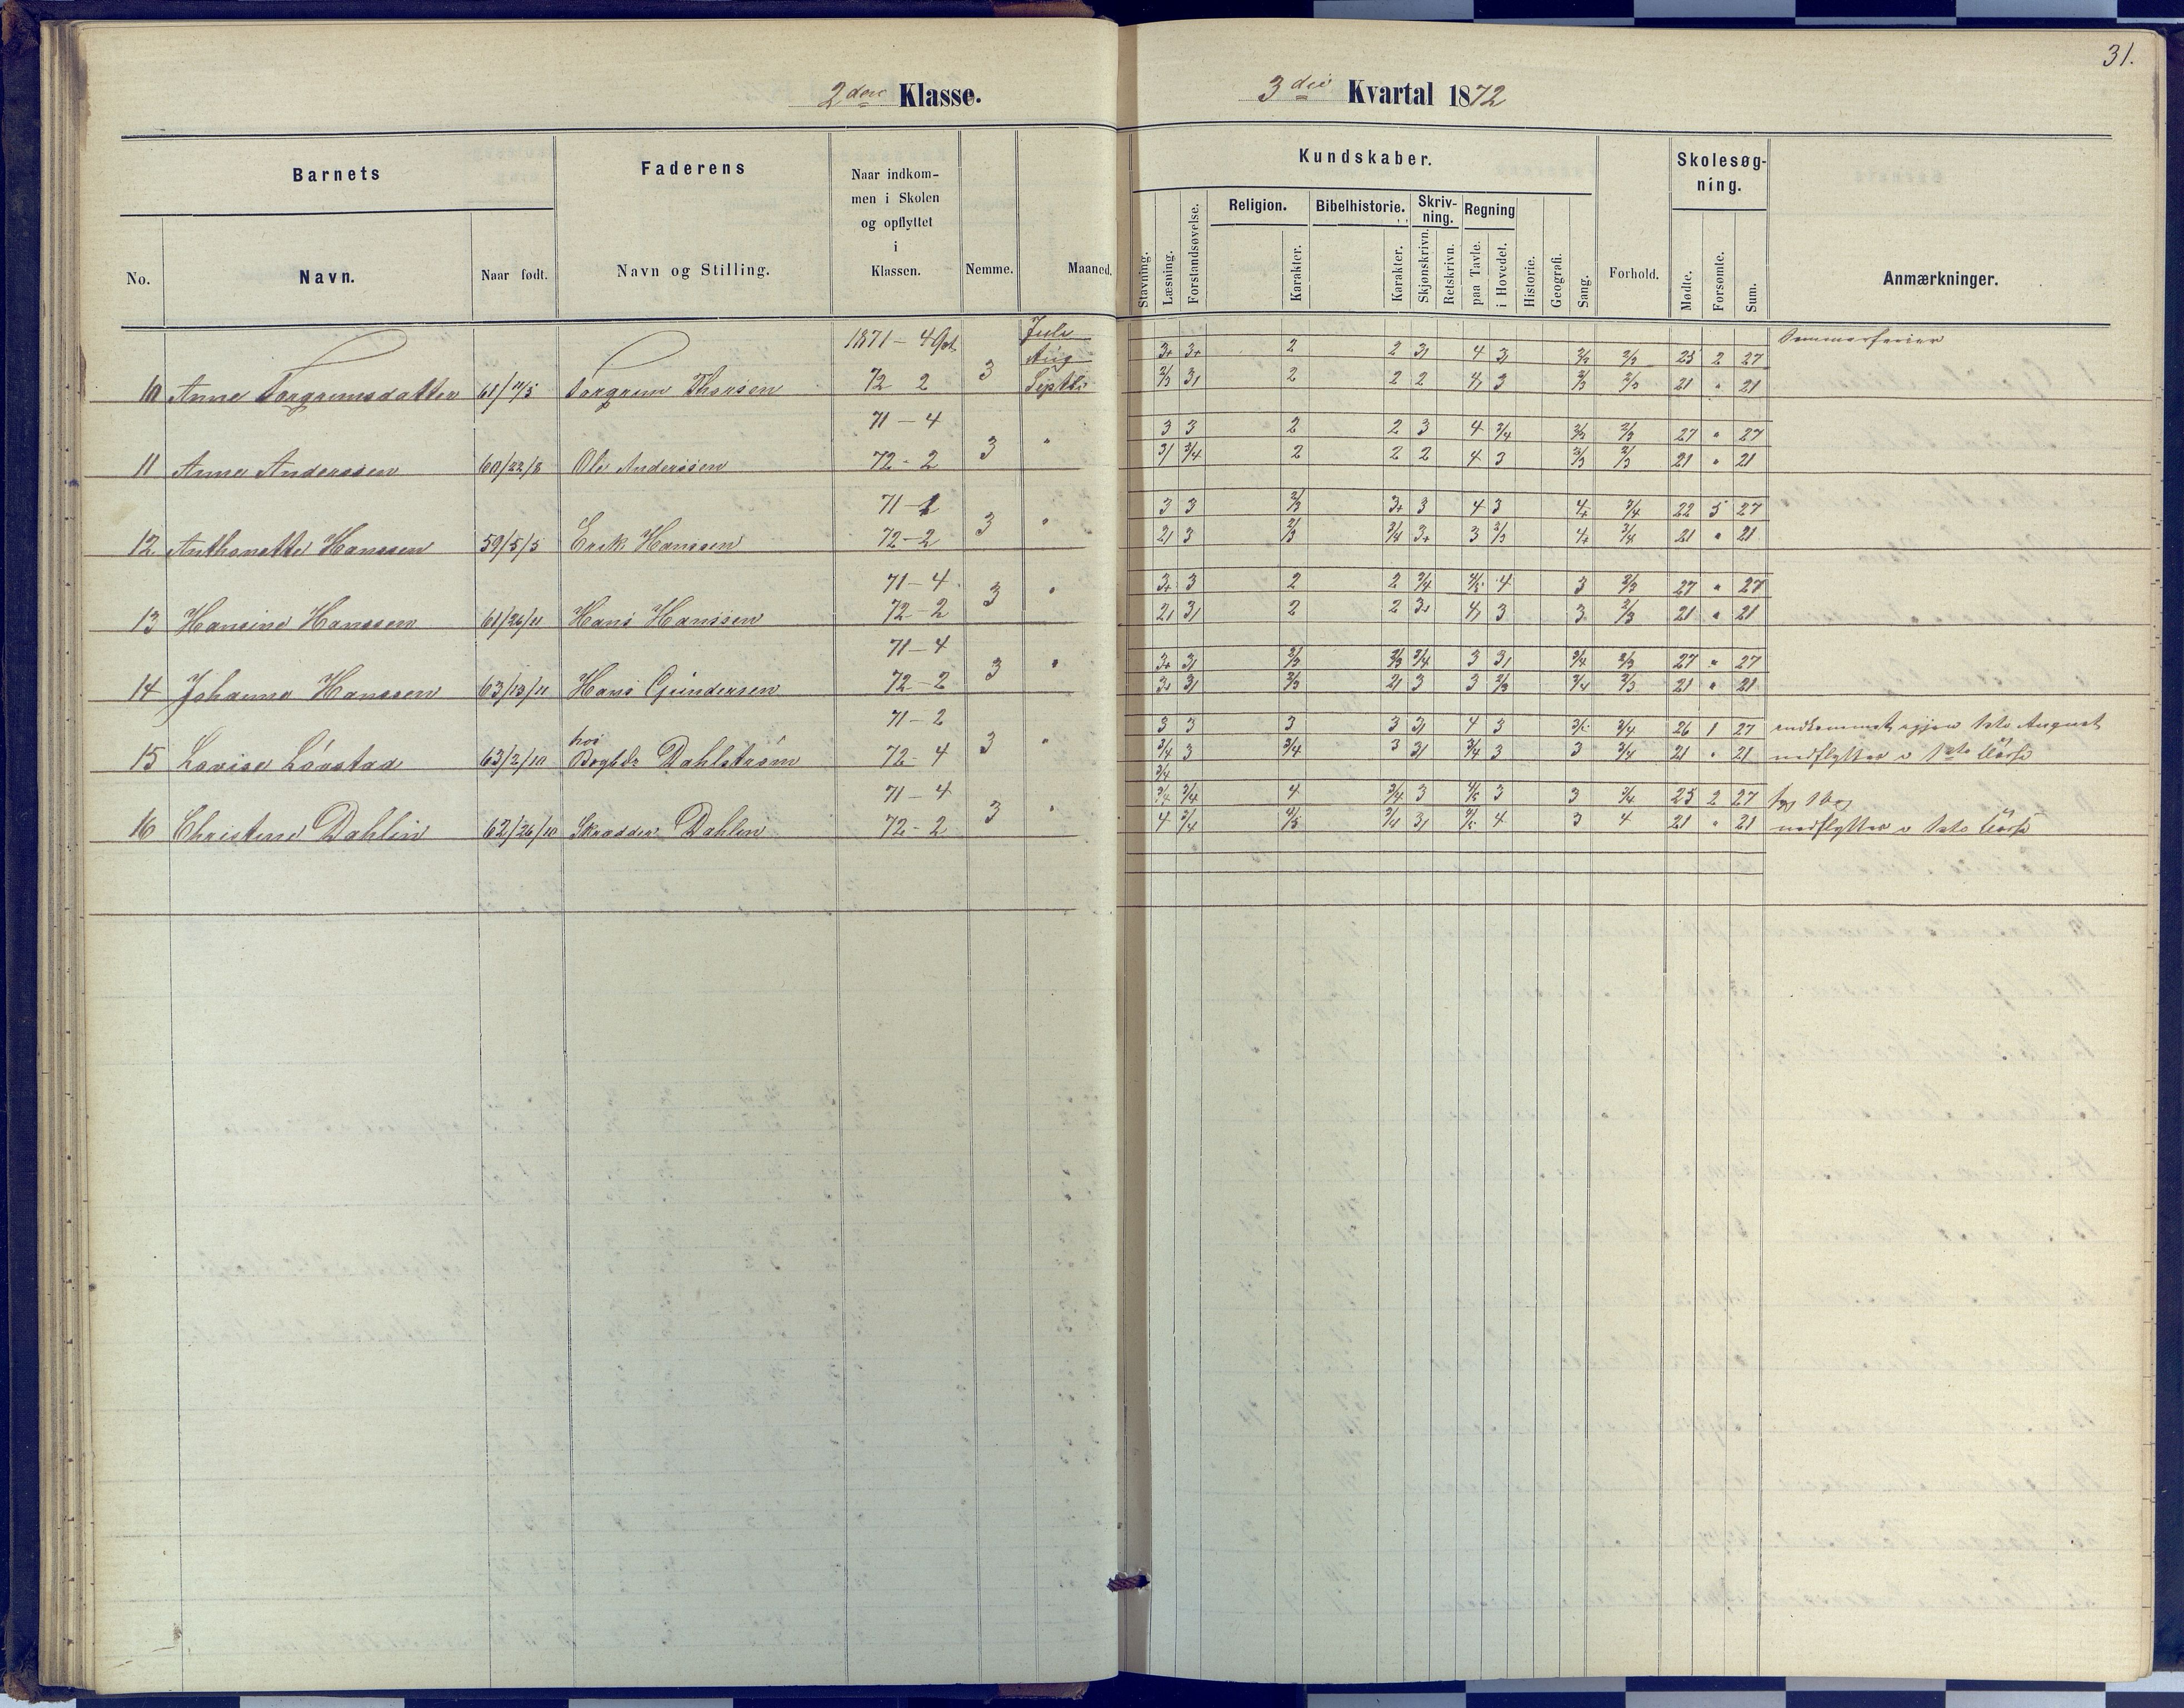 31.
2den Klasse.
3die Kvartal 1872
Barnets
Faderens
Naar indkom-
men i Skolen
og opflyttet
i
Klassen.
No.
Navn.
Naar født.
Navn og Stilling.
Nemme.
Maaned.
Kundskaber.
Skolesøg-
ning.
Religion.
Bibelhistorie.
Skriv-
ning.
Regning
Stavning.
Læsning.
Forstandsøvelse.
Karakter.
Karakter.
Skjønskrivn.
Retskrivn.
paa Tavle.
i Hovedet.
Historie.
Geografi.
Sang.
Forhold.
Mødte.
Forsømte.
Sum.
Anmærkninger.
1871 - 4 Juli Sommerferier
Aug 3+ 3+ 2 2 4 2/3 2/3 25 2 27
10 Anne Torgrimsdatter Torgrim Thorsen 72 2 3 Septbr 2/3 2 2 2 3 2/3 2/3 21 " 21
71 - 4 3 3 2 2 3 4 3/4 2/3 2/3 27 " 27
11 Anna Anderssen 60/22/8 Ole Anderssen 72 - 2 3 " 3/4 2 2 2 4 3 2/3 2/3 21 " 21
71 - 3 3 2/3 3+ 3 4 3 4+ 3/4 22 5 27
12 Anthonette Hanssen 59/5/5 Erik Hanssen 72 - 2 3 " 3 2/3 3/4 3+ 3 2/3 4+ 3/4 21 " 21
71 - 4 3+ 3 2 2 3/4 4 3 2/3 27 " 27
13 Hansine Hanssen 61/26/11 Hans Hanssen 72 - 2 3 " 2 2 3 3 2/3 21 " 21
71 - 4 3+ 2/3 2/3 3/4 3 3/4 2/3 27 " 27
14 Johanne Hanssen 63/13/11 Hans Gundersen 72 - 2 3 " 3+ 2/3 3 3 2/3 3/4 2/3 21 " 21
71 - 2 3 3 3 3 4 3 3/4 26 1 27 indkommet igjen 1ste August
hos
15 Lovise Lövstad 63/2/10 Dahlström 72 - 4 3 " 3/4 3 3/4 3 3/4 3 3 3/4 21 " 21 nedflyttes i 1ste
3/4
71 - 4 3/4 3/4 4 3/4 3 4/5 3 3 3/4 25 2 27
16 Christine Dahlin 62/26/10 Skrædder Dahlin 72 - 2 3 " 4 3/4 4/5 3/4 4 3 4 21 " 21 nedflyttes i 1ste